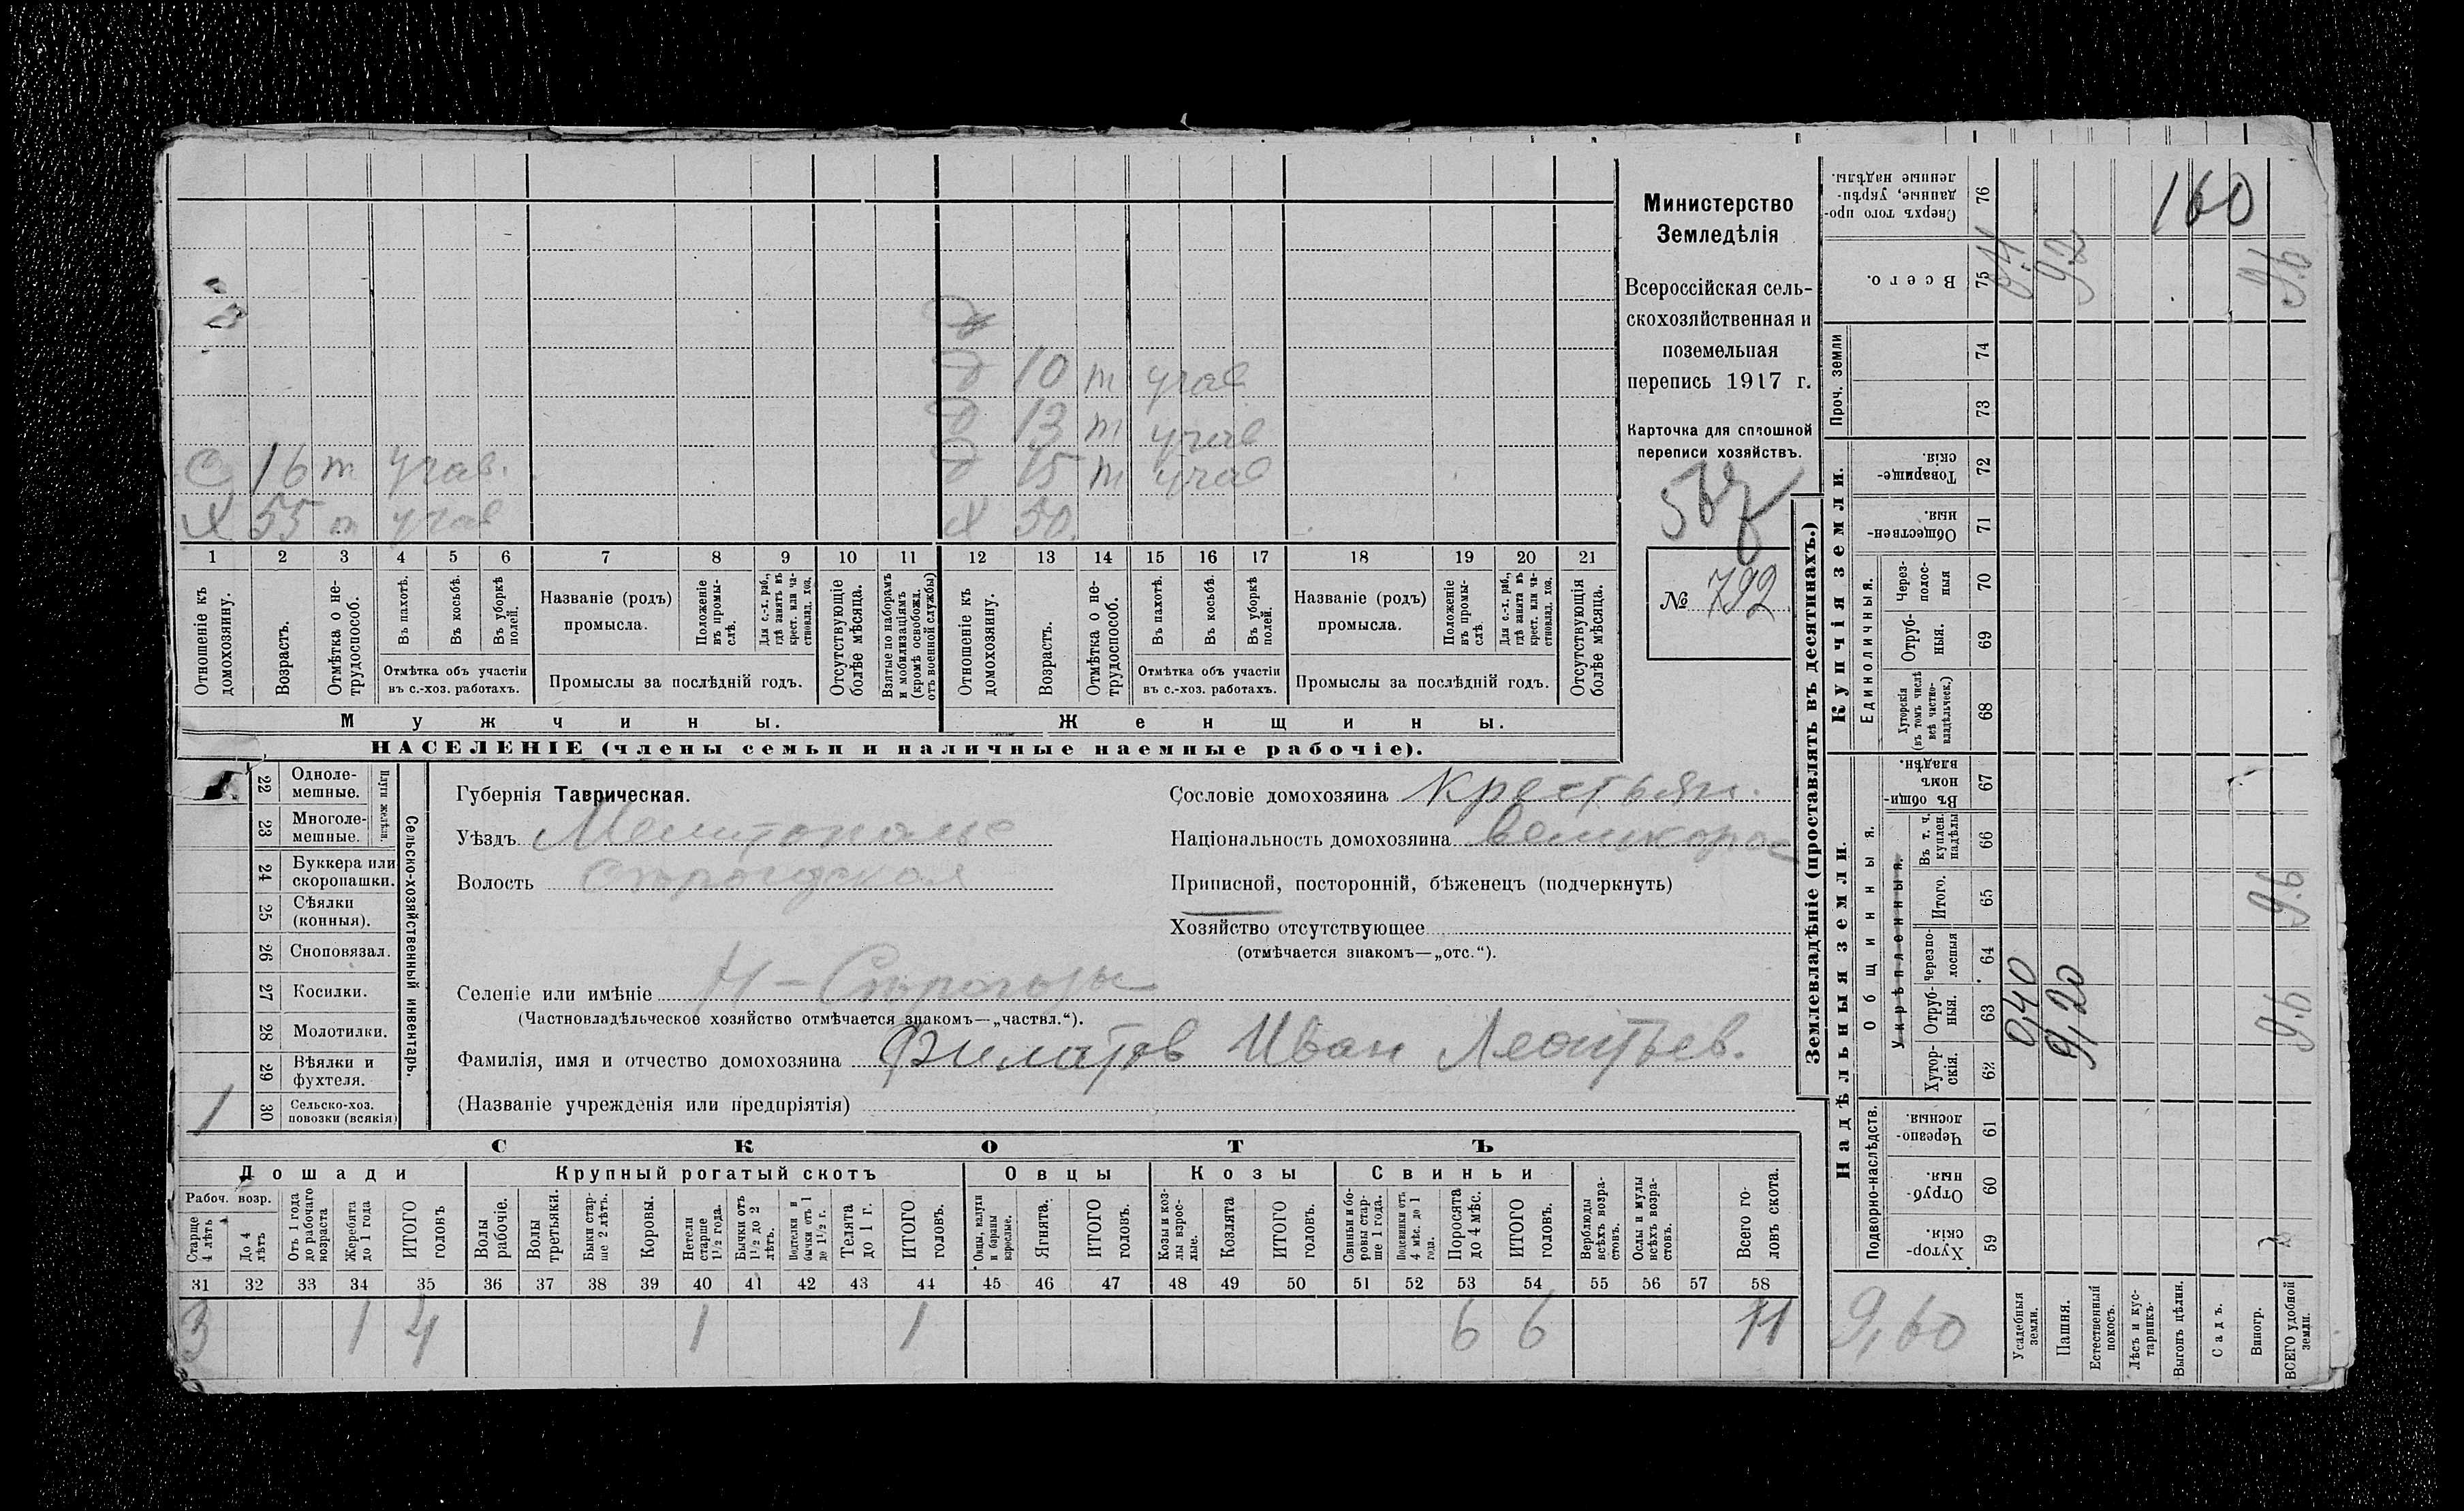 10 т учав
13 т учав
С 16 т учав.
15 т учав
Х 55 т учав
Х 50.
1 2 3 4 5 6 7 8 9 10 11 12 13 14 15 16 17 18 19 20 21
Отношеніе къ домохозяину.
Возрастъ.
Отмѣтка о не-трудоспособ.
Въ пахотѣ.
Въ косьбѣ.
Въ уборкѣ полей.
Отмѣтка объ участіи въ с.-хоз. работахъ.
Названіе (родъ) промысла.
Положеніе въ промы-слѣ.
Для с.-х. раб., гдѣ занятъ въ крест. или ча-стновлад. хоз.
Промыслы за послѣдній годъ.
Отсутствующіе болѣе мѣсяца.
Взятые по наборамъ и мобилизаціямъ (кромѣ освобожд. отъ военной службы)
Отношеніе къ домохозяину.
Возрастъ.
Отмѣтка о не-трудоспособ.
Въ пахотѣ.
Въ косьбѣ.
Въ уборкѣ полей.
Отмѣтка объ участіи въ с.-хоз. работахъ.
Названіе (родъ) промысла.
Положеніе въ промы-слѣ.
Для с.-х. раб., гдѣ занята въ крест. или ча-стновлад. хоз.
Промыслы за послѣдній годъ.
Отсутствующія болѣе мѣсяца.
Мужчины.
Женщины.
НАСЕЛЕНІЕ (члены семьи и наличные наемные рабочіе).
Министерство
Земледѣлія
Всероссійская сель-
скохозяйственная и
поземельная
перепись 1917 г.
Карточка для сплошной
переписи хозяйствъ.
№ 792
22 Одноле-мешные.
23 Многоле-мешные.
Плуги желѣзн.
24 Буккера или скоропашки.
25 Сѣялки (конныя).
26 Сноповязал.
27 Косилки.
28 Молотилки.
29 Вѣялки и фухтеля.
30 Сельско-хоз. повозки (всякія)
1
Сельско-хозяйственный инвентарь.
Губернія Таврическая.
Уѣздъ Мелитополье
Волость Сѣрогозская
Сословіе домохозяина крестьян.
Національность домохозяина великорос
Приписной, посторонній, бѣженецъ (подчеркнуть)
Хозяйство отсутствующее
(отмѣчается знакомъ—„отс.“).
Селеніе или имѣніе Н-Сѣрогозы
(Частновладѣльческое хозяйство отмѣчается знакомъ—„частвл.“).
Фамилія, имя и отчество домохозяина Филатов Иван Леонтьев.
(Названіе учрежденія или предпріятія)
СКОТЪ
Лошади
Крупный рогатый скотъ
Овцы
Козы
Свиньи
Рабоч. возр.
Старше 4 лѣтъ
До 4 лѣтъ
Отъ 1 года до рабочаго возраста
Жеребята до 1 года
ИТОГО головъ
Волы рабочіе.
Волы третьяки.
Быки стар-ше 2 лѣтъ.
Коровы.
Нетели старше 1½ года.
Бычки отъ 1½ до 2 лѣтъ.
Подтелки и бычки отъ 1 до 1½ г.
Телята до 1 г.
ИТОГО головъ.
Овцы, валухи и бараны взрослые.
Ягнята.
ИТОГО головъ.
Козы и коз-лы взрос-лые.
Козлята
ИТОГО головъ.
Свиньи и бо-ровы стар-ше 1 года.
Подсвинки отъ 4 мѣс. до 1 года.
Поросята до 4 мѣс.
ИТОГО головъ.
Верблюды всѣхъ возра-стовъ.
Ослы и мулы всѣхъ возра-стовъ.
Всего го-ловъ скота.
31 32 33 34 35 36 37 38 39 40 41 42 43 44 45 46 47 48 49 50 51 52 53 54 55 56 57 58
3 1 4 1 1 6 6 11
Землевладѣніе (проставлять въ десятинахъ.)
Надѣльныя земли.
Купчія земли.
Проч. земли
Подворно-наслѣдств.
Общинныя.
Укрѣпленныя.
Единоличныя.
Сверхъ того про-данные, укрѣп-ленные надѣлы. 76
160
Всего. 75
0.4
9.2
9.6
74
73
Товарище-скія. 72
Обществен-ныя. 71
Через-полос-ныя 70
Отруб-ныя. 69
Хуторскія (въ томъ числѣ всѣ частно-владѣльческ.) 68
Въ общи-номъ владѣн. 67
Въ т. ч. куплен. надѣлы 66
Итого. 65
9.6
Черезпо-лосныя 64
Отруб-ныя. 63
0,40
9,20
9.6
Хутор-скія. 62
Черезпо-лосныя 61
Отруб-ныя. 60
Хутор-скія. 59
9,60
Усадебныя земли.
Пашня.
Естественный покосъ.
Лѣсъ и кус-тарникъ.
Выгонъ цѣлин.
Садъ.
Виногр.
ВСЕГО удобной земли.